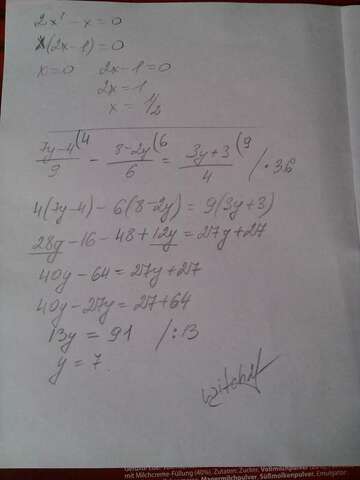 2x² - x = 0
x(2x-1) = 0
x = 0 2x-1 = 0
2x = 1
x = 1/2
7y-4/9 (4 - 8-2y/6 (6 = 3y+3/4 (9 /·36
4(7y-4) - 6(8-2y) = 9(3y+3)
28y - 16 - 48 + 12y = 27y + 27
40y - 64 = 27y + 27
40y - 27y = 27 + 64
13y = 91 /:13
y = 7.
mit Milchcreme-Füllung (40%). Zutaten: Zucker, Vollmilchpulver
Magermilchpulver, Süßmolkenpulver, Emulgator